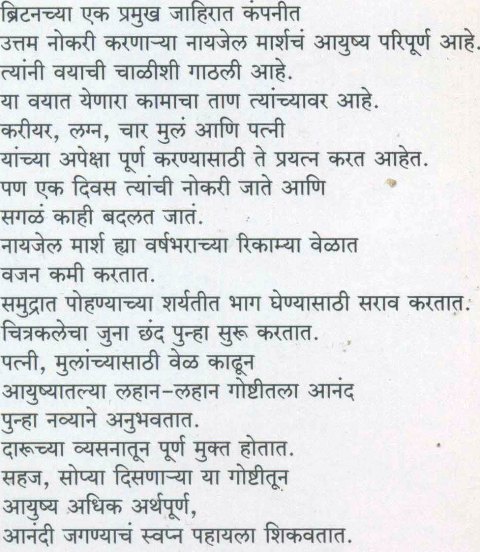 ब्रिटनच्या एक प्रमुख जाहिरात कंपनीत
उत्तम नोकरी करणाऱ्या नायजेल मार्शचं आयुष्य परिपूर्ण आहे.
त्यांनी वयाची चाळीशी गाठली आहे.
या वयात येणारा कामाचा ताण त्यांच्यावर आहे.
करीयर, लग्न, चार मुलं आणि पत्नी
यांच्या अपेक्षा पूर्ण करण्यासाठी ते प्रयत्न करत आहेत.
पण एक दिवस त्यांची नोकरी जाते आणि
सगळं काही बदलत जातं.
नायजेल मार्श ह्या वर्षभराच्या रिकाम्या वेळात
वजन कमी करतात.
समुद्रात पोहण्याच्या शर्यतीत भाग घेण्यासाठी सराव करतात.
चित्रकलेचा जुना छंद पुन्हा सुरू करतात.
पत्नी, मुलांच्यासाठी वेळ काढून
आयुष्यातल्या लहान-लहान गोष्टीतला आनंद
पुन्हा नव्याने अनुभवतात.
दारूच्या व्यसनातून पूर्ण मुक्त होतात.
सहज, सोप्या दिसणाऱ्या या गोष्टीतून
आयुष्य अधिक अर्थपूर्ण,
आनंदी जगण्याचं स्वप्न पहायला शिकवतात.